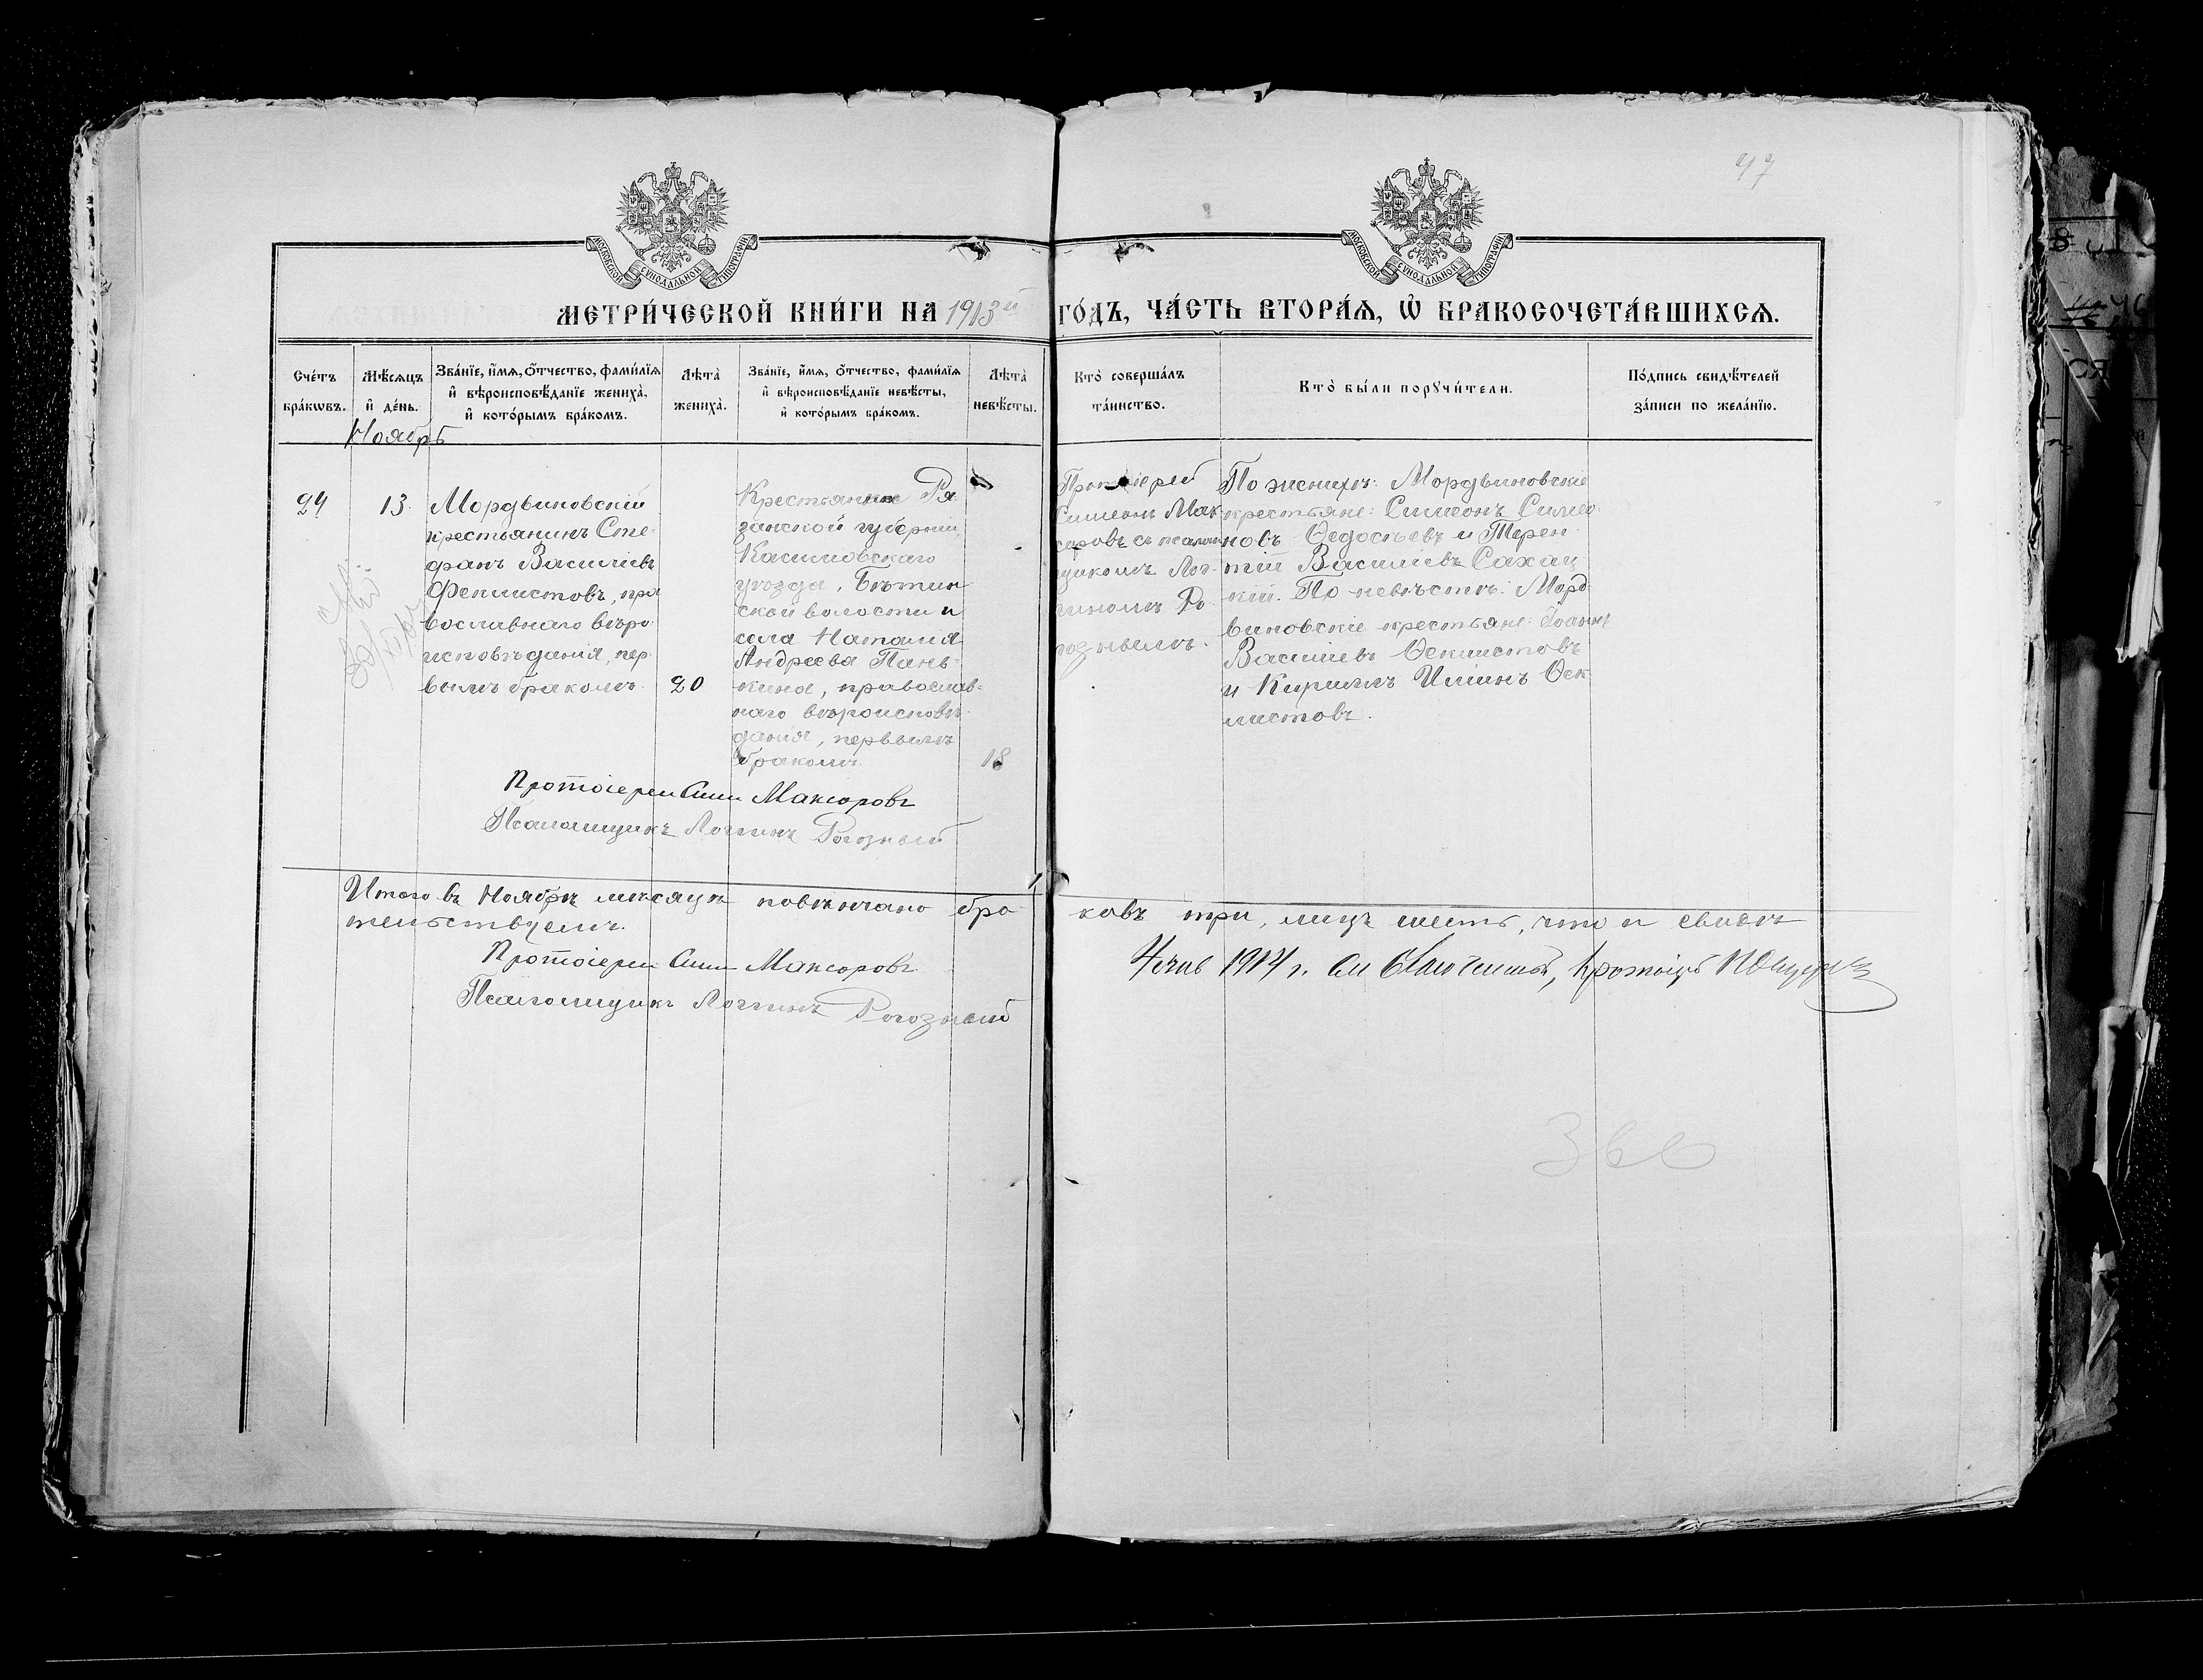 47
МОСКОВСКОЙ СѴНОДАЛЬНОЙ ТИПОГРАФІИ
МОСКОВСКОЙ СѴНОДАЛЬНОЙ ТИПОГРАФІИ
МЕТРИ́ЧЕСКОЙ КНИ́ГИ НА 1913й ГО́ДЪ, ЧА́СТЬ ВТОРА́Ѧ, Ѽ БРАКОСОЧЕТА́ВШИХСѦ.
Сче́тъ
бра́кѡвъ.
Мѣ́сѧцъ
и҆ де́нь.
Ноябрь
Зва́нїе, и҆́мѧ, ѻ҆́тчество, фами́лїѧ
и҆ вѣроисповѣ́данїе жениха̀,
и҆ кото́рымъ бра́комъ.
Лѣта̀
жениха̀.
Зва́нїе, и҆́мѧ, ѻ҆́тчество, фами́лїѧ
и҆ вѣроисповѣ́данїе невѣ́сты,
и҆ кото́рымъ бра́комъ.
Лѣта̀
невѣ́сты.
Кто̀ соверша́лъ
та́инство.
Кто̀ бы́ли порꙋчи́тели.
По́дпись свидѣ́телей
за́писи по жела́нїю.
24
13.
Мордвиновскій
крестьянинъ Сте-
фанъ Василіевъ
Феклистовъ, пра
вославнаго вѣро-
исповѣданія, пер-
вымъ бракомъ.
20
Крестьянка Ря-
занской губерніи,
Касимовскаго
уѣзда, Бѣтин
ской волости и
села Наталія
Андреева Пань-
кина, православ-
наго вѣроисповѣ-
данія, первымъ
бракомъ.
18
Протоіерей
Симеонъ Мак-
соровъ съ псалом
щикомъ Лог-
гиномъ Ро-
гознымъ.
По женихѣ: Мордвиновскіе
крестьяне: Симеонъ Симео-
новъ Ѳедосѣевъ и Терен-
тій Василіевъ Сахац-
кій. По невѣстѣ: Морд-
виновскіе крестьяне: Іоаннъ
Василіевъ Ѳеклистовъ
и Кириллъ Ильинъ Ѳек
листовъ.
Протоіерей Сим Максоровъ
Псаломщикъ Логгинъ Рогозный
Итого въ Ноябрѣ мѣсяцѣ повѣнчано бра- ковъ три, лицъ шесть, что и свидѣ-
тельствуемъ.
Протоіерей Сим Максоровъ.
Псаломщикъ Логгинъ Рогозный
1914 г.